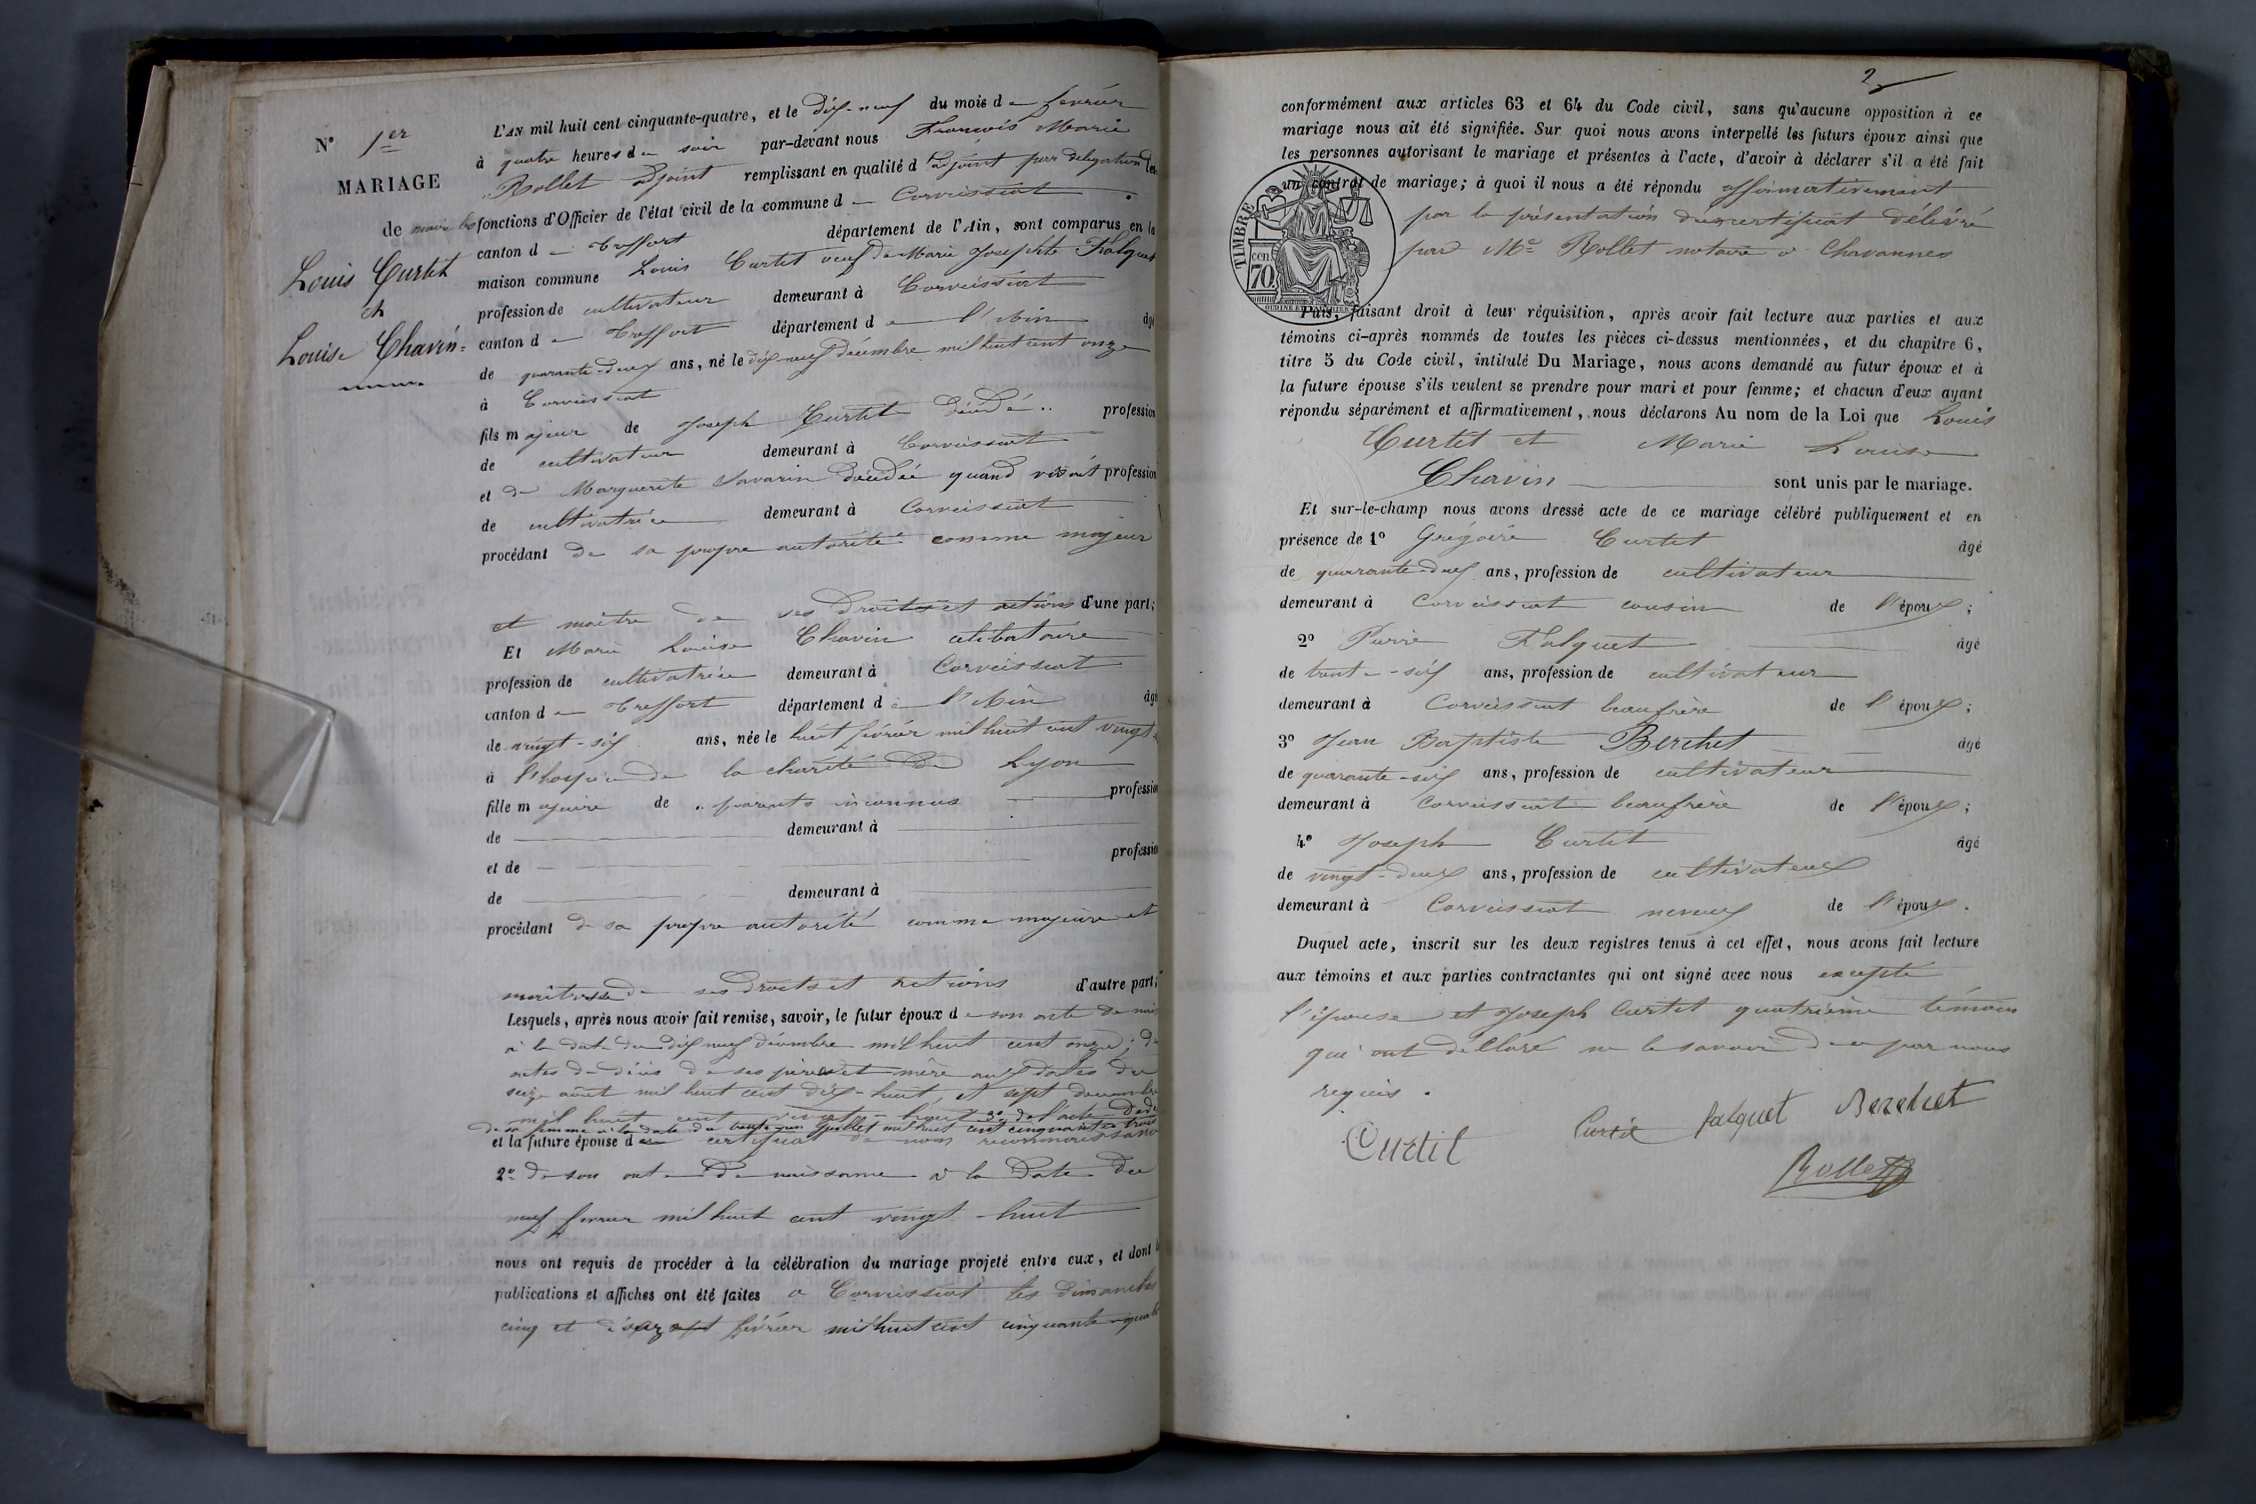 N° 1er
MARIAGE
de
Louis Curtet
et
Louise Chavin
L'AN mil huit cent cinquante-quatre, et le dix-neuf du mois de février
à quatre heures du soir par-devant nous François Marie
Rollet adjoint remplissant en qualité d'adjoint par délégation les
fonctions d'Officier de l'état civil de la commune de Corveissiat
canton de Treffort département de l'Ain, sont comparus en la
maison commune Louis Curtet veuf de Marie Josephte Falquet
profession de cultivateur demeurant à Corveissiat
canton de Treffort département de l'Ain âgé
de quarante-deux ans, né le dix-neuf décembre mil huit cent onze
à Corveissiat
fils majeur de Joseph Curtet décédé profession
de cultivateur demeurant à Corveissiat
et de Marguerite Savarin décédée quand vivait profession
de cultivatrice demeurant à Corveissiat
procédant de sa propre autorité comme majeur
et maître de ses droits et actions d'une part;
Et Marie Louise Chavin célibataire
profession de cultivatrice demeurant à Corveissiat
canton de Treffort département de l'Ain âgé
de vingt-six ans, née le huit février mil huit cent vingt
à l'hospice de la charité de Lyon
fille majeure de parents inconnus profession
de demeurant à
et de profession
de demeurant à
procédant de sa propre autorité comme majeure et
maîtresse de ses droits et actions d'autre part;
Lesquels, après nous avoir fait remise, savoir, le futur époux de son acte de nais
à la date du dix neuf décembre mil huit cent onze; de
actes de décès de ses père et mère aux dates du
seize août mil huit cent dix-huit, et sept décembre
mil huit cent vingt-huit 3° de l'acte de dé
de sa femme à la date du juillet mil huit cent cinquante trois
et la future épouse de certificat de nous reconnaissant
2° de son acte de naissance à la date du
neuf février mil huit cent vingt-huit
nous ont requis de procéder à la célébration du mariage projeté entre eux, et dont
publications et affiches ont été faites à Corveissiat les dimanches
cinq et février mil huit cent cinquante quatre
2
conformément aux articles 63 et 64 du Code civil, sans qu'aucune opposition à ce
mariage nous ait été signifiée. Sur quoi nous avons interpellé les futurs époux ainsi que
les personnes autorisant le mariage et présentes à l'acte, d'avoir à déclarer s'il a été fait
un contrat de mariage; à quoi il nous a été répondu affirmativement
par la présentation du certificat délivré
par Me Rollet notaire à Chavannes
TIMBRE
cen.
70.
Puis, faisant droit à leur réquisition, après avoir fait lecture aux parties et aux
témoins ci-après nommés de toutes les pièces ci-dessus mentionnées, et du chapitre 6,
titre 5 du Code civil, intitulé Du Mariage, nous avons demandé au futur époux et à
la future épouse s'ils veulent se prendre pour mari et pour femme; et chacun d'eux ayant
répondu séparément et affirmativement, nous déclarons Au nom de la Loi que Louis
Curtet et Marie Louise
Chavin sont unis par le mariage.
Et sur-le-champ nous avons dressé acte de ce mariage célébré publiquement et en
présence de 1° Grégoire Curtet âgé
de quarante-deux ans, profession de cultivateur
demeurant à Corveissiat cousin de l'époux;
2° Pierre Falquet âgé
de trente-six ans, profession de cultivateur
demeurant à Corveissiat beaufrère de l'époux;
3° Jean Baptiste Berchet âgé
de quarante-six ans, profession de cultivateur
demeurant à Corveissiat beaufrère de l'époux;
4° Joseph Curtet âgé
de vingt-deux ans, profession de cultivateur
demeurant à Corveissiat neveux de l'époux.
Duquel acte, inscrit sur les deux registres tenus à cet effet, nous avons fait lecture
aux témoins et aux parties contractantes qui ont signé avec nous excepté
l'épouse et Joseph Curtet quatrième témoin
qui ont déllaré ne le savoir de ce par nous
requis.
Curtil Curtet falquet Berchet
Rollet